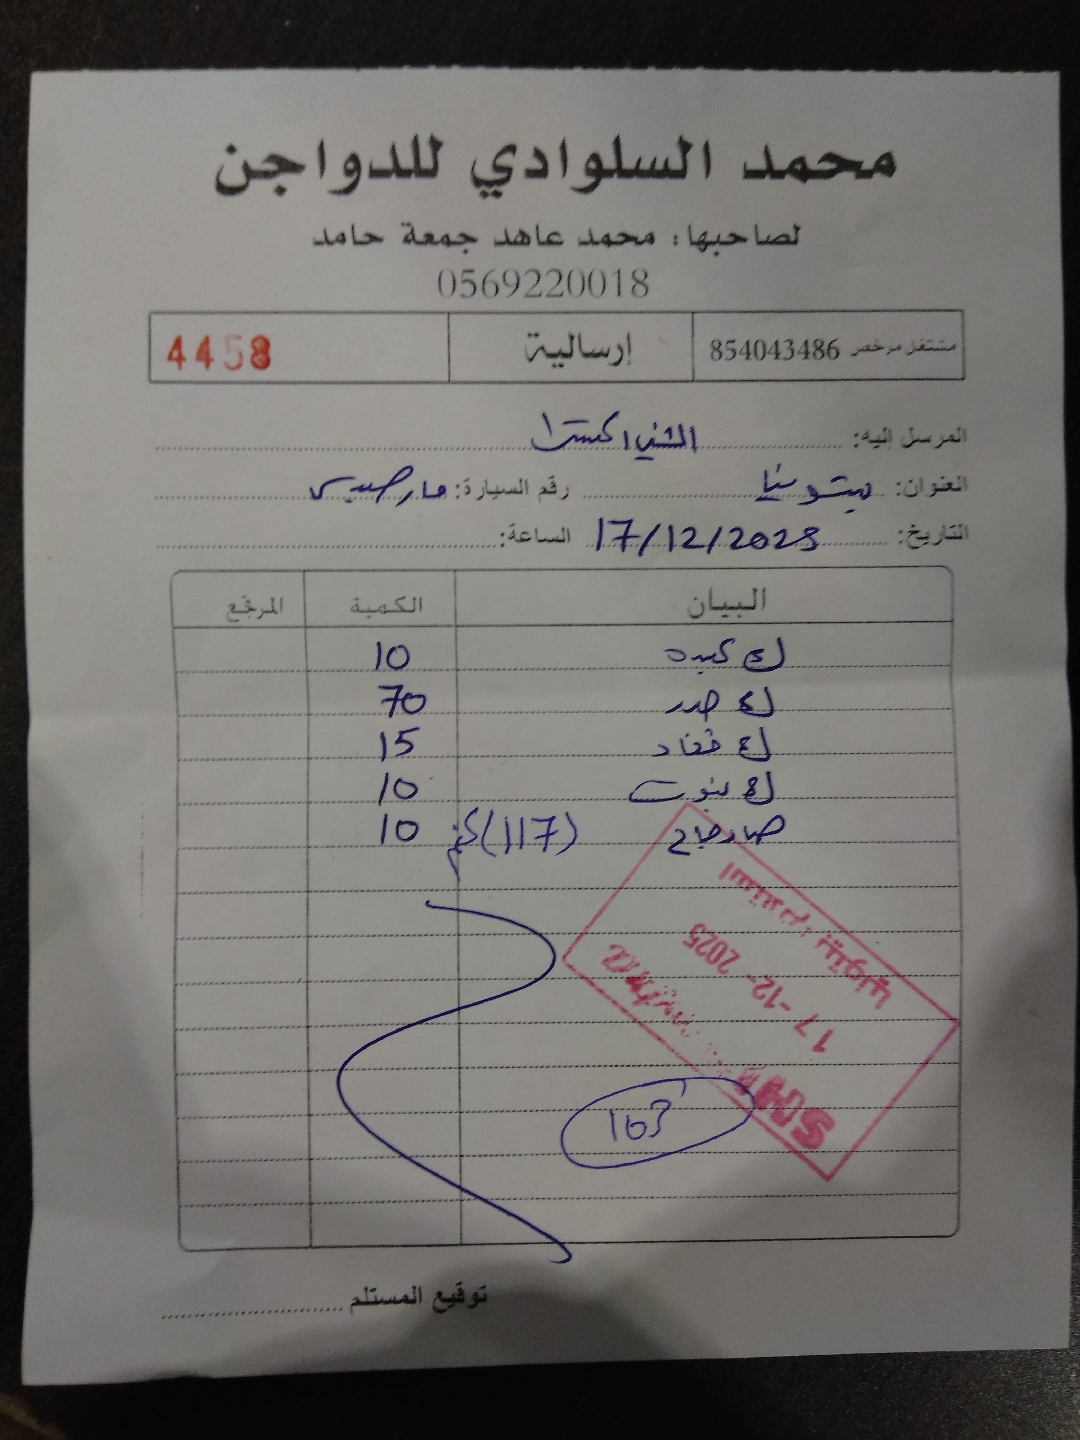 محمد السلوادي للدواجن
لصاحبها: محمد عاهد جمعة حامد
0569220018
مشتغل مرخص 854043486 إرسالية 4458
المرسل إليه: الشني اكسترا
العنوان: بيتونيا رقم السيارة: مارصيس
التاريخ: 17/12/2025 الساعة:
البيان الكمية المرتجع
كغ كبده 10
كغ صدر 70
كغ فخاد 15
كغ بنوت 10
صدر دجاج (117) كغم 10
استلام: بيتونيا
17-12-2025
163
توقيع المستلم